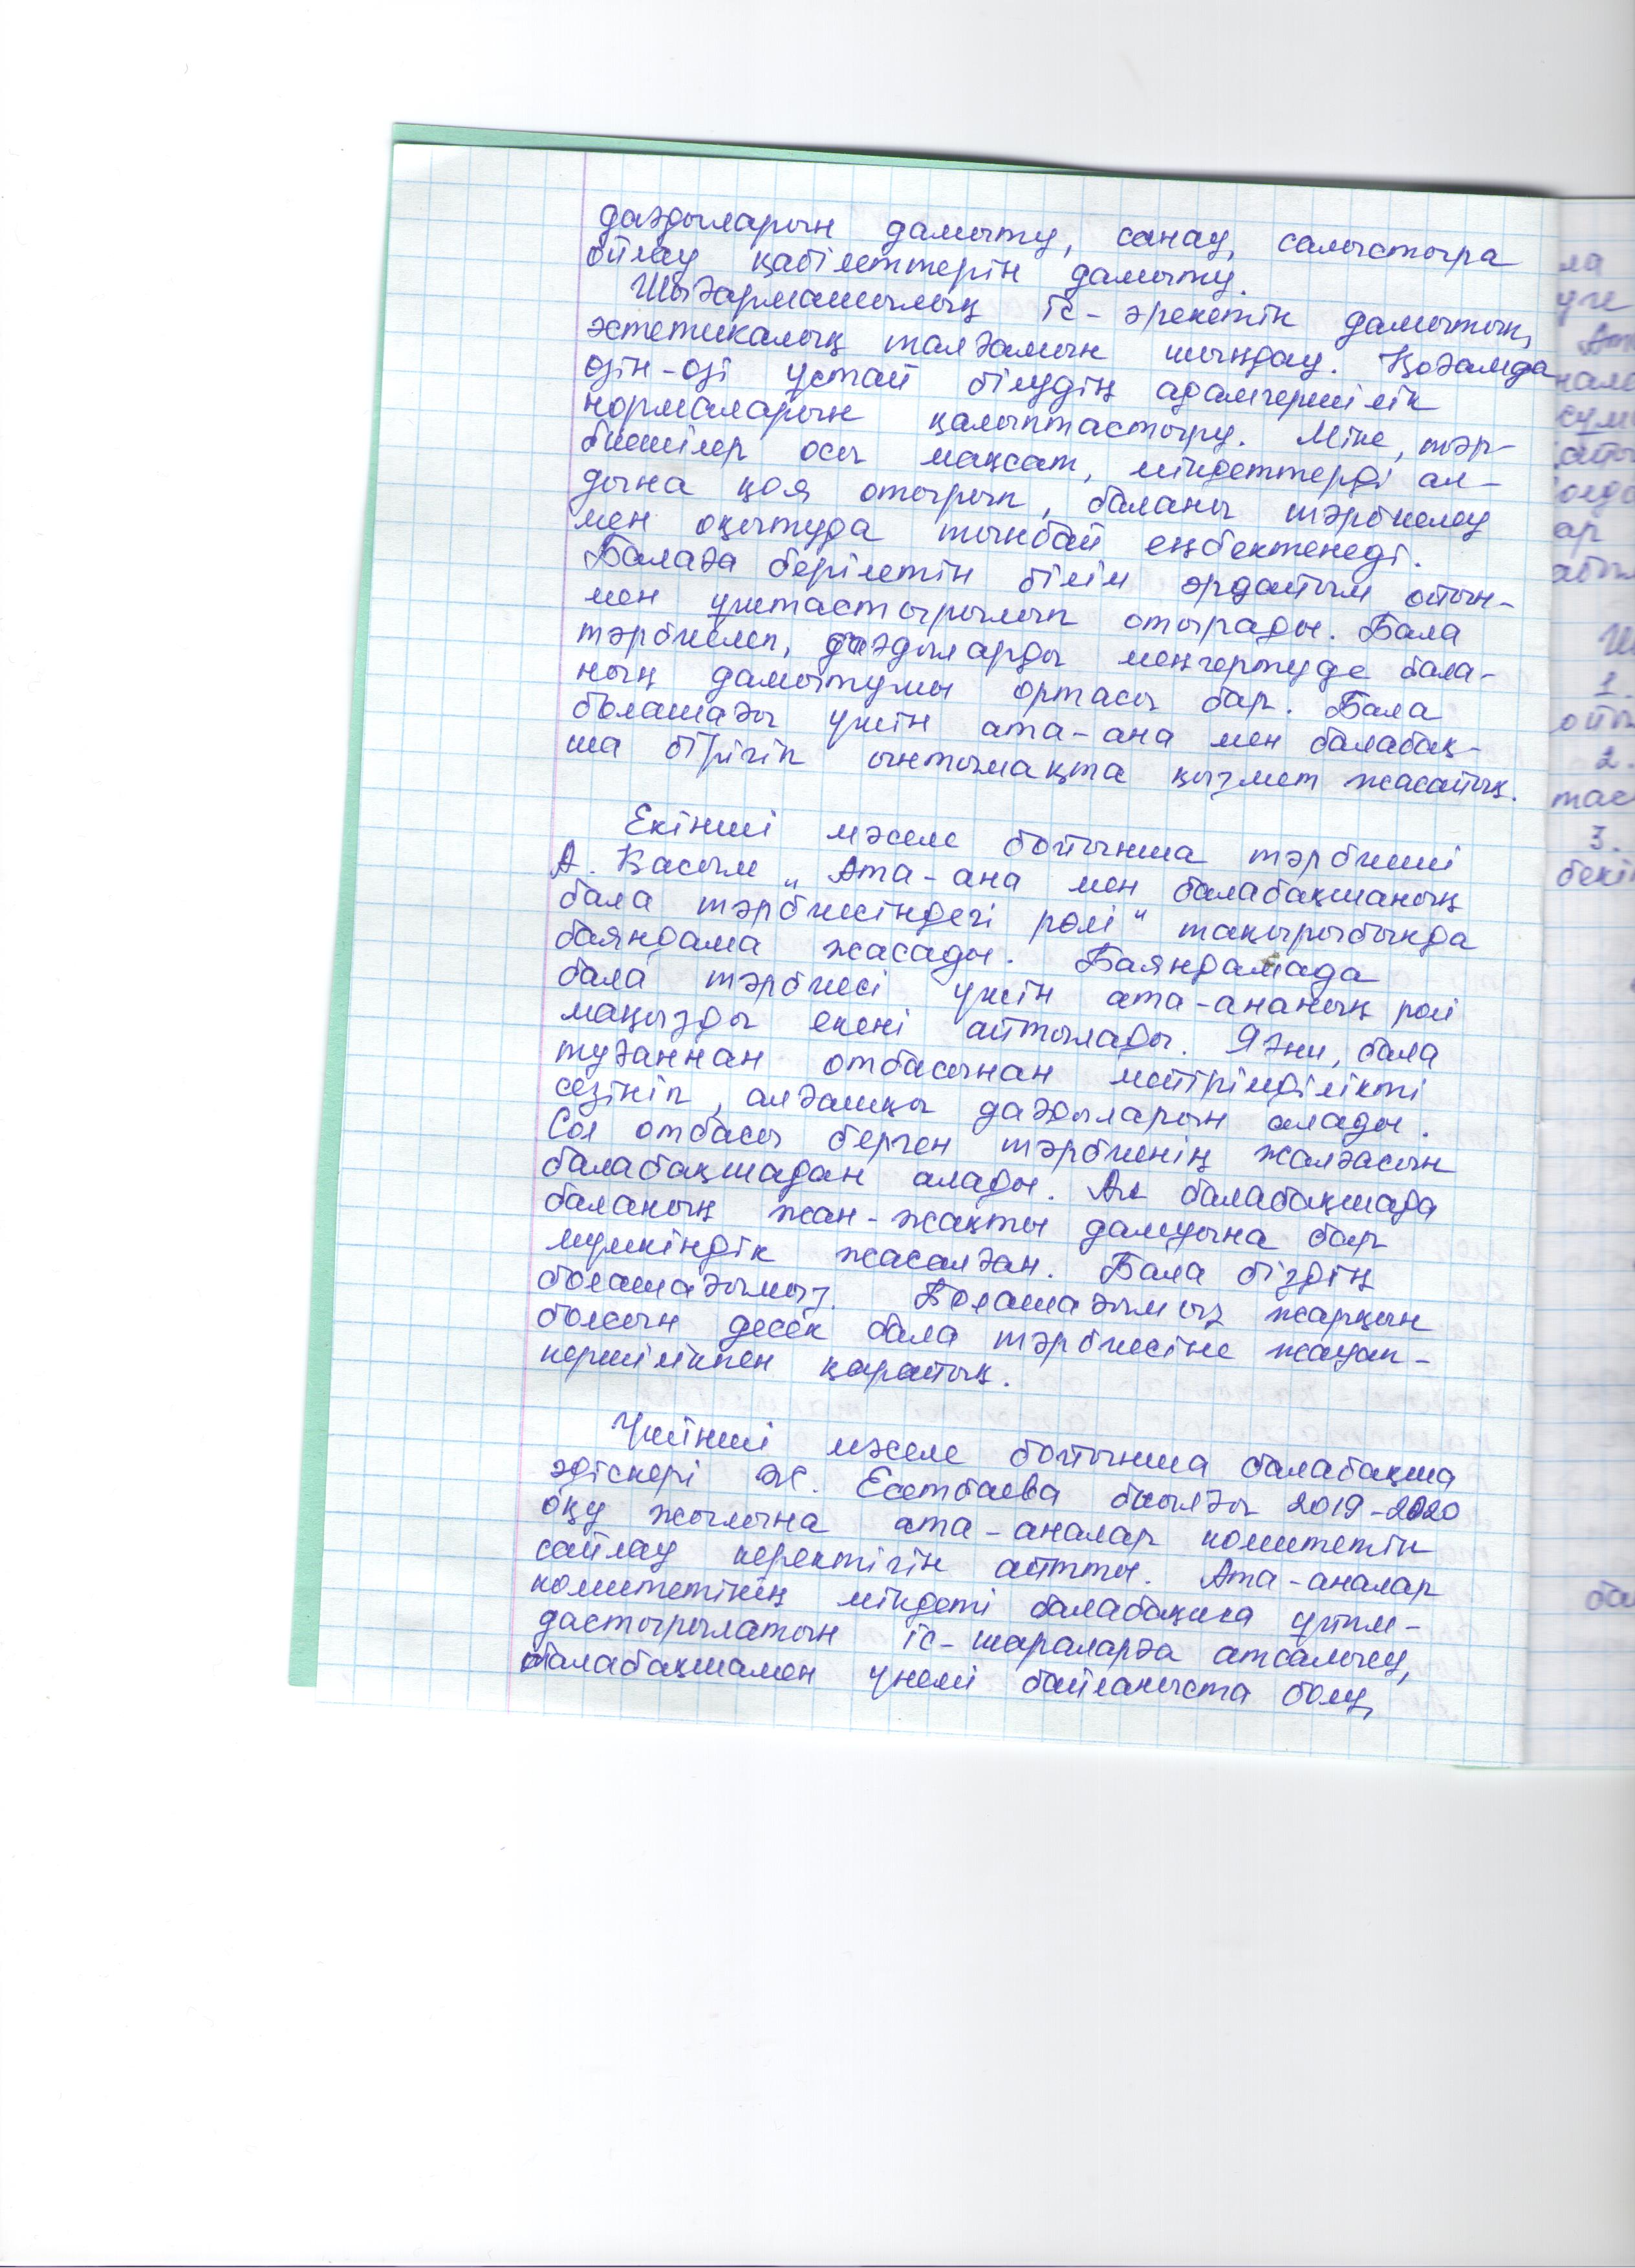 дағдыларын дамыту, санау, салыстыра
ойлау қабілеттерін дамыту.
Шығармашылық іс-әрекетін дамытып,
эстетикалық талғамын шыңдау. Қоғамда
өзін-өзі ұстай білудің адамгершілік
нормаларын қалыптастыру. Міне, тәр-
биешілер осы мақсат, міндеттерді ал-
дына қоя отырып, баланы тәрбиелеу
мен оқытуда тынбай еңбектенеді.
Балаға берілетін білім әрдайым ойын-
мен ұштастырылып отырады. Бала
тәрбиелеп, дағдыларды меңгертуде бала-
ның дамытушы ортасы бар. Бала
болашағы үшін ата-ана мен балабақ-
ша бірігіп ынтымақта қызмет жасайық.
Екінші мәселе бойынша тәрбиеші
А. Касым „Ата-ана мен балабақшаның
бала тәрбиесіндегі рөлі" тақырыбында
баяндама жасады. Баяндамада
бала тәрбиесі үшін ата-ананың рөлі
маңызды екені айтылады. Яғни, бала
туғаннан отбасынан мейірімділікті
сезініп, алғашқы дағдыларын алады.
Сол отбасы берген тәрбиенің жалғасын
балабақшадан алады. Ал балабақшада
баланың жан-жақты дамуына бар
мүмкіндік жасалған. Бала біздің
болашағымыз. Болашағымыз жарқын
болсын десек бала тәрбиесіне жауап-
кершілікпен қарайық.
Үшінші мәселе бойынша балабақша
әдіскері Ж. Есетбаева биылғы 2019-2020
оқу жылына ата-аналар комитетін
сайлау керектігін айтты. Ата-аналар
комитетінің міндеті балабақша ұйым-
дастырылатын іс-шараларға атсалысу,
балабақшамен үнемі байланыста болу,